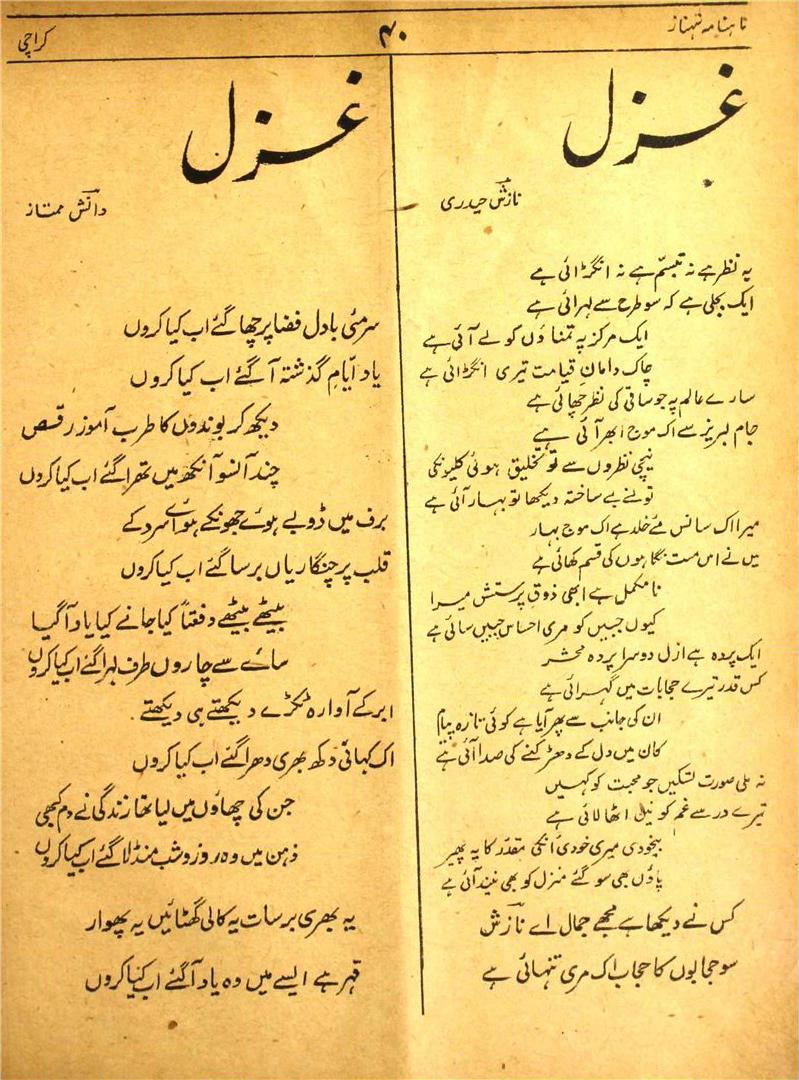 ماہنامہ شہناز
۴۰
کراچی
غزل
نازش حیدری
یہ نظر ہے نہ تبسّم ہے نہ انگڑائی ہے
ایک بجلی ہے کہ سو طرح سے لہرائی ہے
ایک مرکز پہ تمناؤں کو لے آئی ہے
چاک دامانِ قیامت تیری انگڑائی ہے
سارے عالم پہ جو ساقی کی نظر چھائی ہے
جام لبریز سے اک موج ابھر آئی ہے
نیچی نظروں سے تو تخلیق ہوئی کلیونکی
تونے بے ساختہ دیکھا تو بہار آئی ہے
میرا اک سانس مئے خلد ہے اک موج بہار
میں نے اس مست نگاہوں کی قسم کھائی ہے
نامکمل ہے ابھی ذوقِ پرستش میرا
کیوں جبیں کو مری احساس جبیں سائی ہے
ایک پردہ ہے ازل دوسرا پردہ محشر
کس قدر تیرے حجابات میں گہرائی ہے
ان کی جانب سے پھر آیا ہے کوئی تازہ پیام
کان میں دل کے دھڑکنے کی صدا آئی ہے
نہ ملی صورت تسکیں جو محبت کو کہیں
تیرے در سے غم کونین اٹھا لائی ہے
بیخودی میری خودی انکی مقدّر کا یہ پھیر
پاؤں بھی سو گئے منزل کو بھی نیند آئی ہے
کس نے دیکھا ہے مجھے جمال اے نازش
سو حجابوں کا حجاب اک مری تنہائی ہے
غزل
دانش ممتاز
سرمئی بادل فضا پر چھا گئے اب کیا کروں
یاد ایّامِ گذشتہ آ گئے اب کیا کروں
دیکھ کر بوندوں کا طرب آموز رقص
چند آنسو آنکھ میں تھرا گئے اب کیا کروں
برف میں ڈوبے ہوئے جھونکے ہوائے سرد کے
قلب پر چنگاریاں برسا گئے اب کیا کروں
بیٹھے بیٹھے دفعتاً کیا جانے کیا یاد آ گیا
سائے سے چاروں طرف لہرا گئے اب کیا کروں
ابر کے آوارہ ٹکڑے دیکھتے ہی دیکھتے
اک کہانی دکھ بھری دھرا گئے اب کیا کروں
جن کی چھاؤں میں لیا تھا زندگی نے دم کبھی
ذہن میں وہ روز و شب منڈلا گئے اب کیا کروں
یہ بھری برسات یہ کالی گھٹائیں یہ پھوار
قہر ہے ایسے میں وہ یاد آ گئے اب کیا کروں